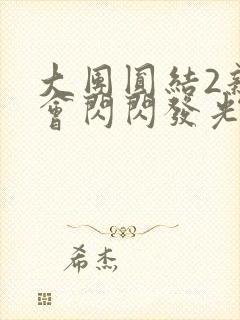 大團圓結2親
會閃閃發光
希杰